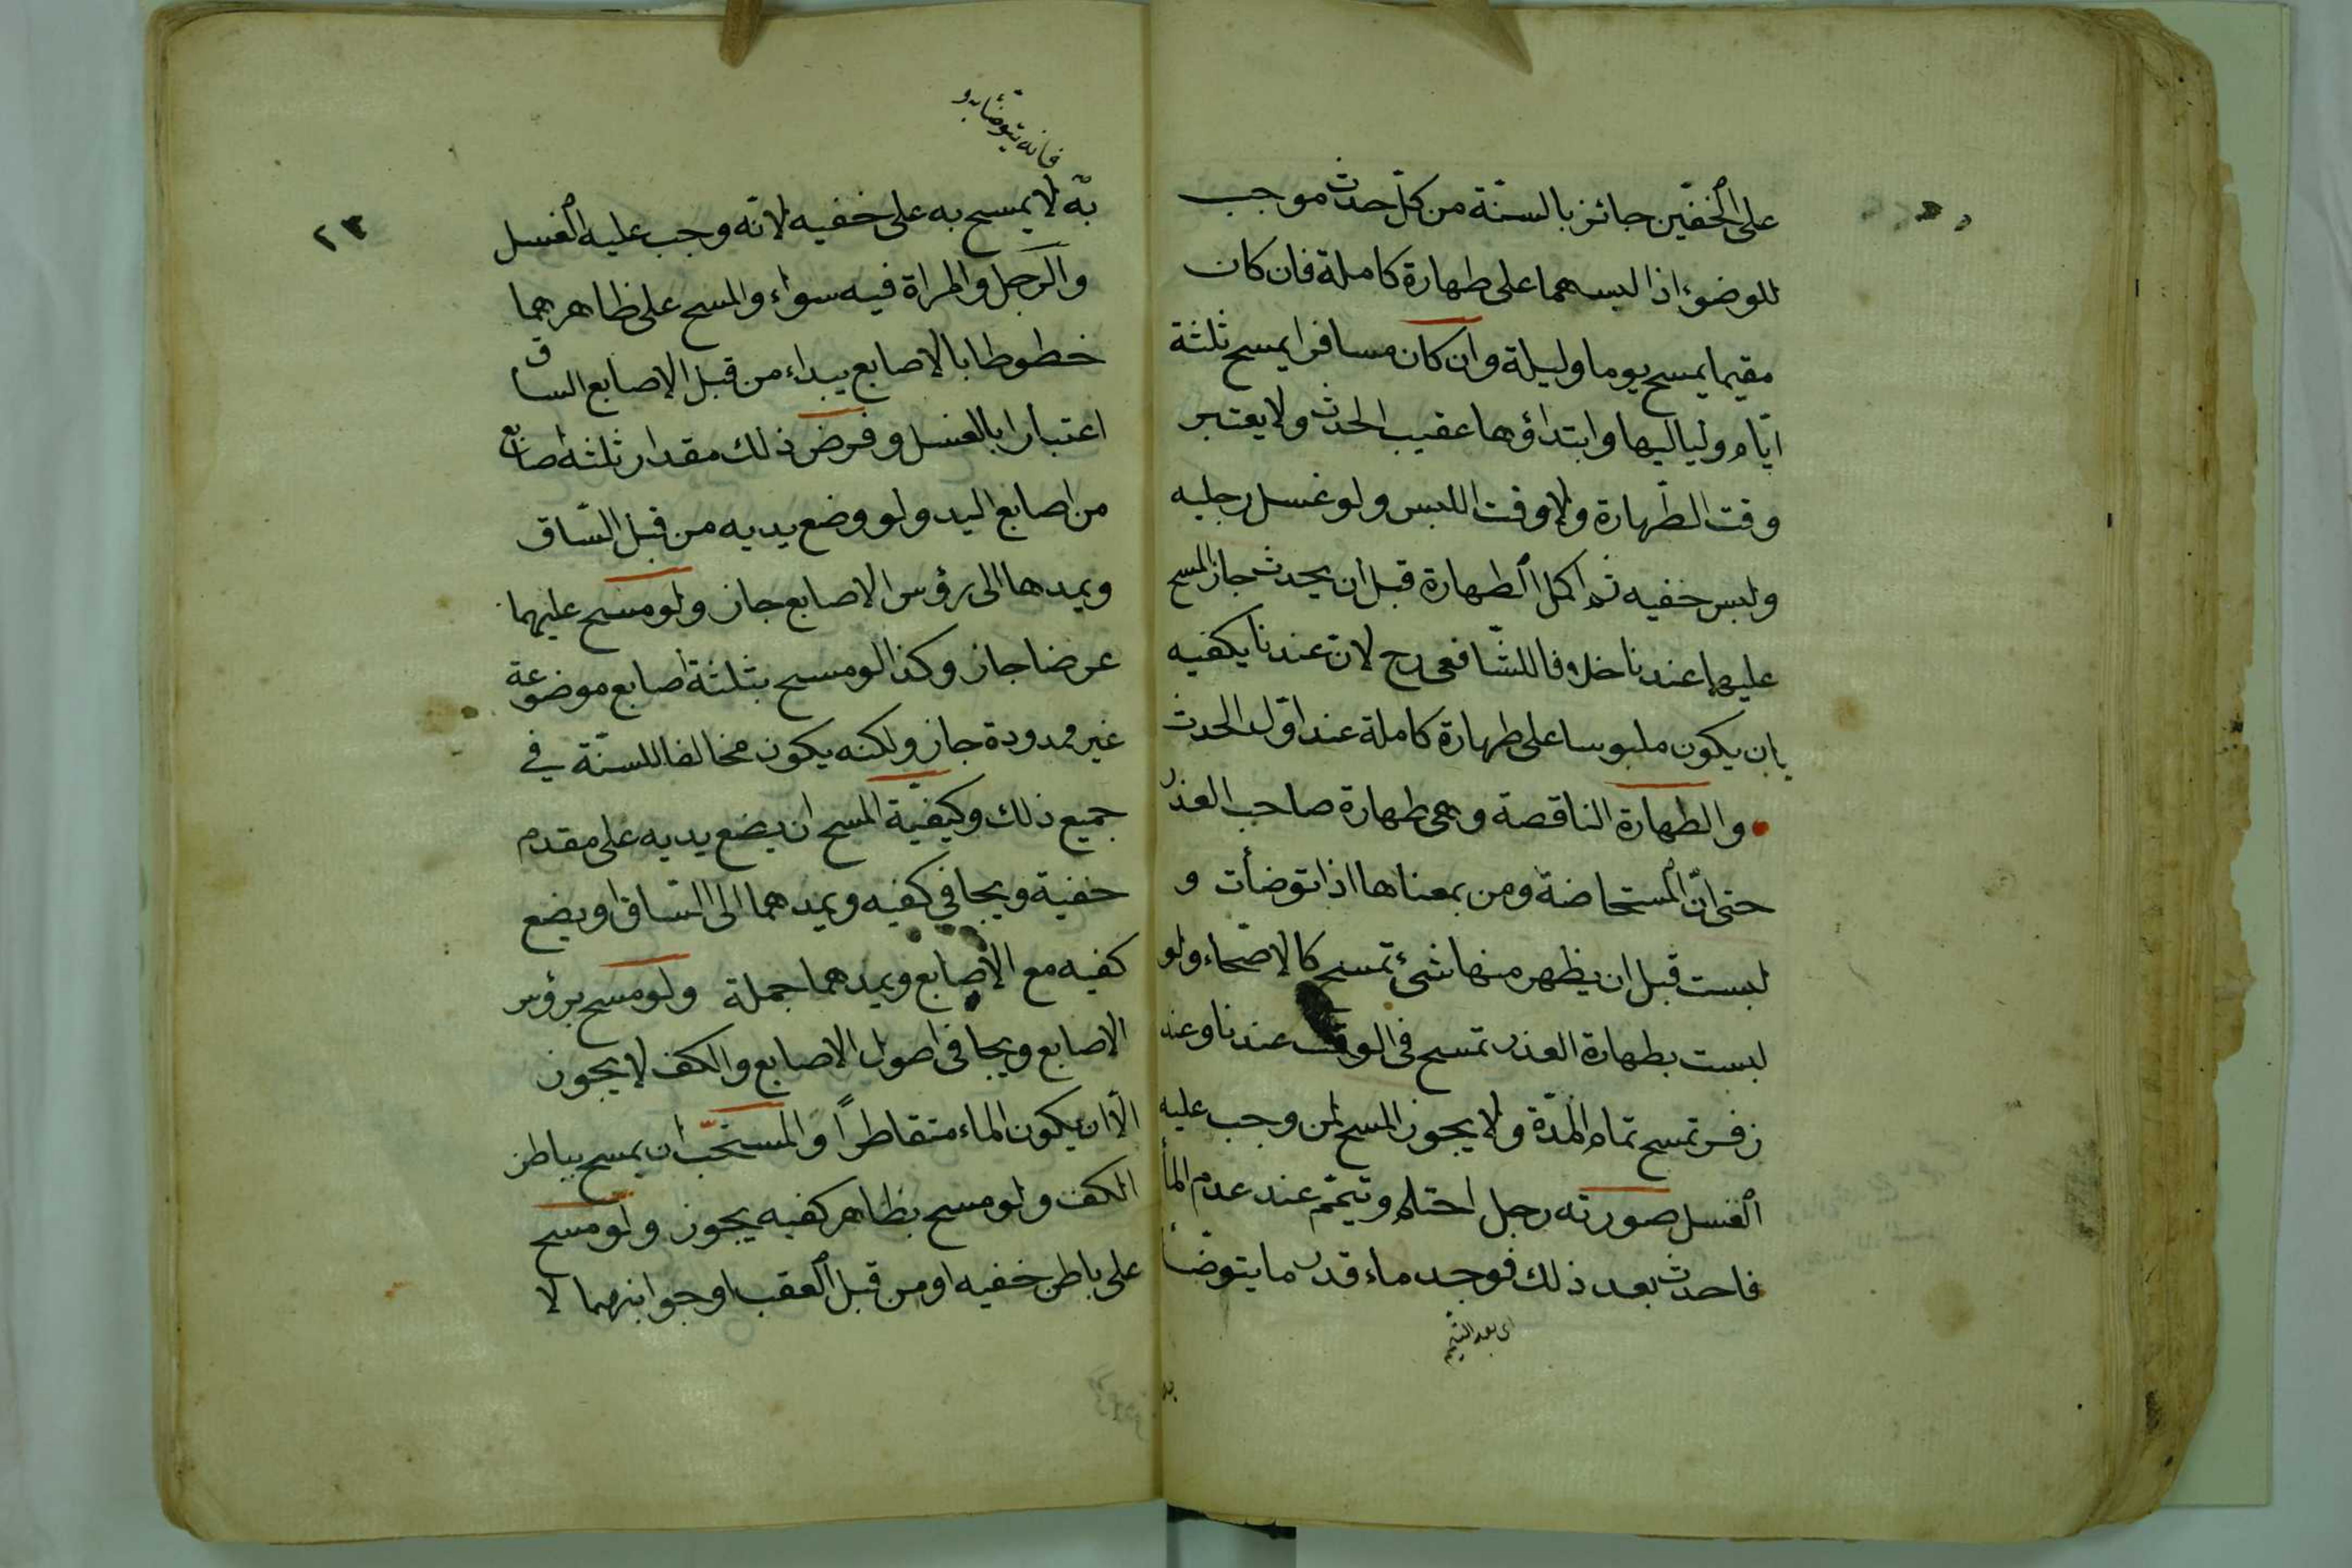 على الخفّين جائز بالسنّة من كلّ حدث موجب
للوضوء اذا لبسهما على طهارة كاملة فان كان
مقيما يمسح يوما وليلة وان كان مسافرا يمسح ثلثة
ايّام ولياليها وابتداؤها عقيب الحدث ولا يعتبر
وقت الطّهارة ولا وقت اللبس ولو غسل رجليه
ولبس خفيه ثم اكمل الطهارة قبل ان يحدث جاز المسح
عليهما عندنا خلافا للشّافعى رح لانّ عندنا يكفيه
بان يكون ملبوسا على طهارة كاملة عند اوّل الحدث
والطهارة الناقصة وهى طهارة صاحب العذر
حتى انّ المستحاضة ومن بمعناها اذا توضأت و
لبست قبل ان يظهر منها شئ تمسح كالاصّحاء ولو
لبست بطهارة العذر تمسح فى الوقت عندنا وعند
زفر تمسح تمام المدّة ولا يجوز المسح لمن وجب عليه
الغسل صورته رجل احتلم وتيمّم عند عدم المأ
فاحدث بعد ذلك فوجد ماء قدر ما يتوضّأ
اى بعد التيمّم
فانه يتوضّأ به و
٢٣
به لا يمسح به على خفيه لانّه وجب عليه الغسل
والرّجل والمراة فيه سواء والمسح على ظاهرهما
خطوطا بالاصابع يبداء من قبل الاصابع الساق
اعتبارا بالغسل وفرض ذلك مقدار ثلثه اصابع
من اصابع اليد ولو وضع يديه من قبل السّاق
ويمدها الى رؤس الاصابع جاز ولو مسح عليهما
عرضا جاز وكذا لو مسح بثلثة اصابع موضوعة
غير ممدودة جاز ولكنه يكون مخالفا للسنّة في
جميع ذلك وكيفيّة المسح ان يضع يديه على مقدم
خفية ويجافي كفيه ويمدهما الى السّاق او يضع
كفيه مع الاصابع ويمدهما جملة ولو مسح برؤس
الاصابع ويجافى اصول الاصابع والكف لا يجوز
الّا ان يكون الماء متقاطرًا والمستحبّ ان يمسح بباطن
الكف ولو مسح بظاهر كفيه يجوز ولو مسح
على باطن خفيه او من قبل العقب او جوانبهما لا